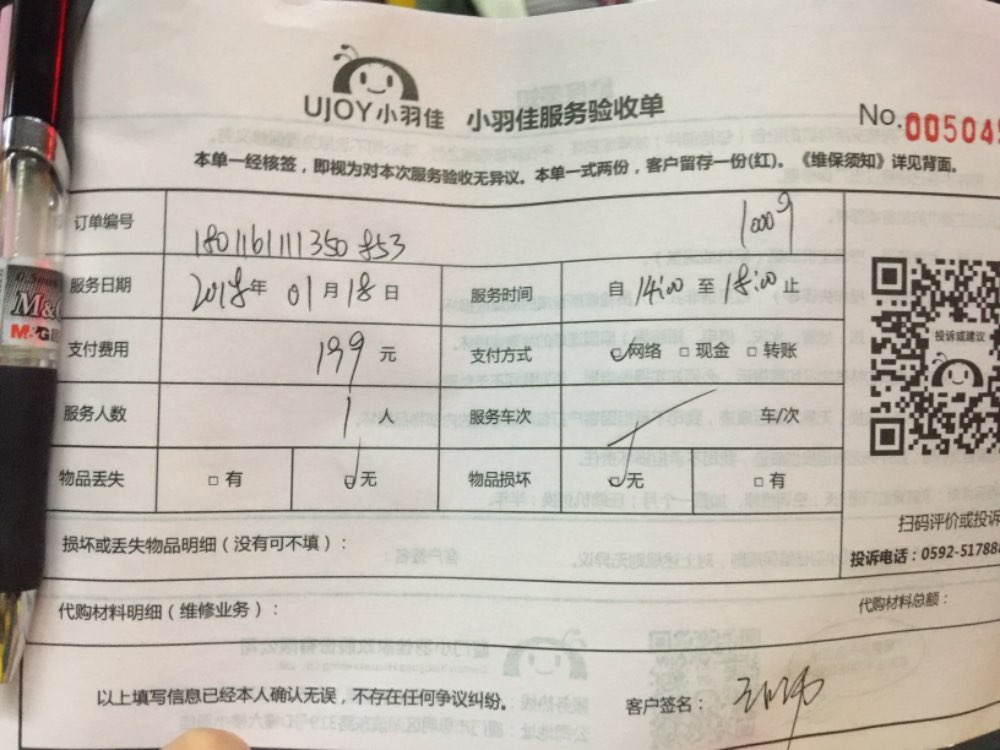 UJOY小羽佳 小羽佳服务验收单
No.
本单一经核签，即视为对本次服务验收无异议。本单一式两份，客户留存一份(红)。《维保须知》详见背面。
订单编号 180116111350853 10009
服务日期 2018年 01月 18日 服务时间 自 14:00 至 18:00 止
支付费用 199 元 支付方式 网络 □ 现金 □ 转账
服务人数 1 服务车次 车/次
物品丢失 □ 有 无 物品损坏 无 □ 有
投诉或建议
损坏或丢失物品明细（没有可不填）：
扫码评价或投诉
投诉电话：0592-51788
代购材料明细（维修业务）：
代购材料总额：
以上填写信息已经本人确认无误，不存在任何争议纠纷。 客户签名：
M&G